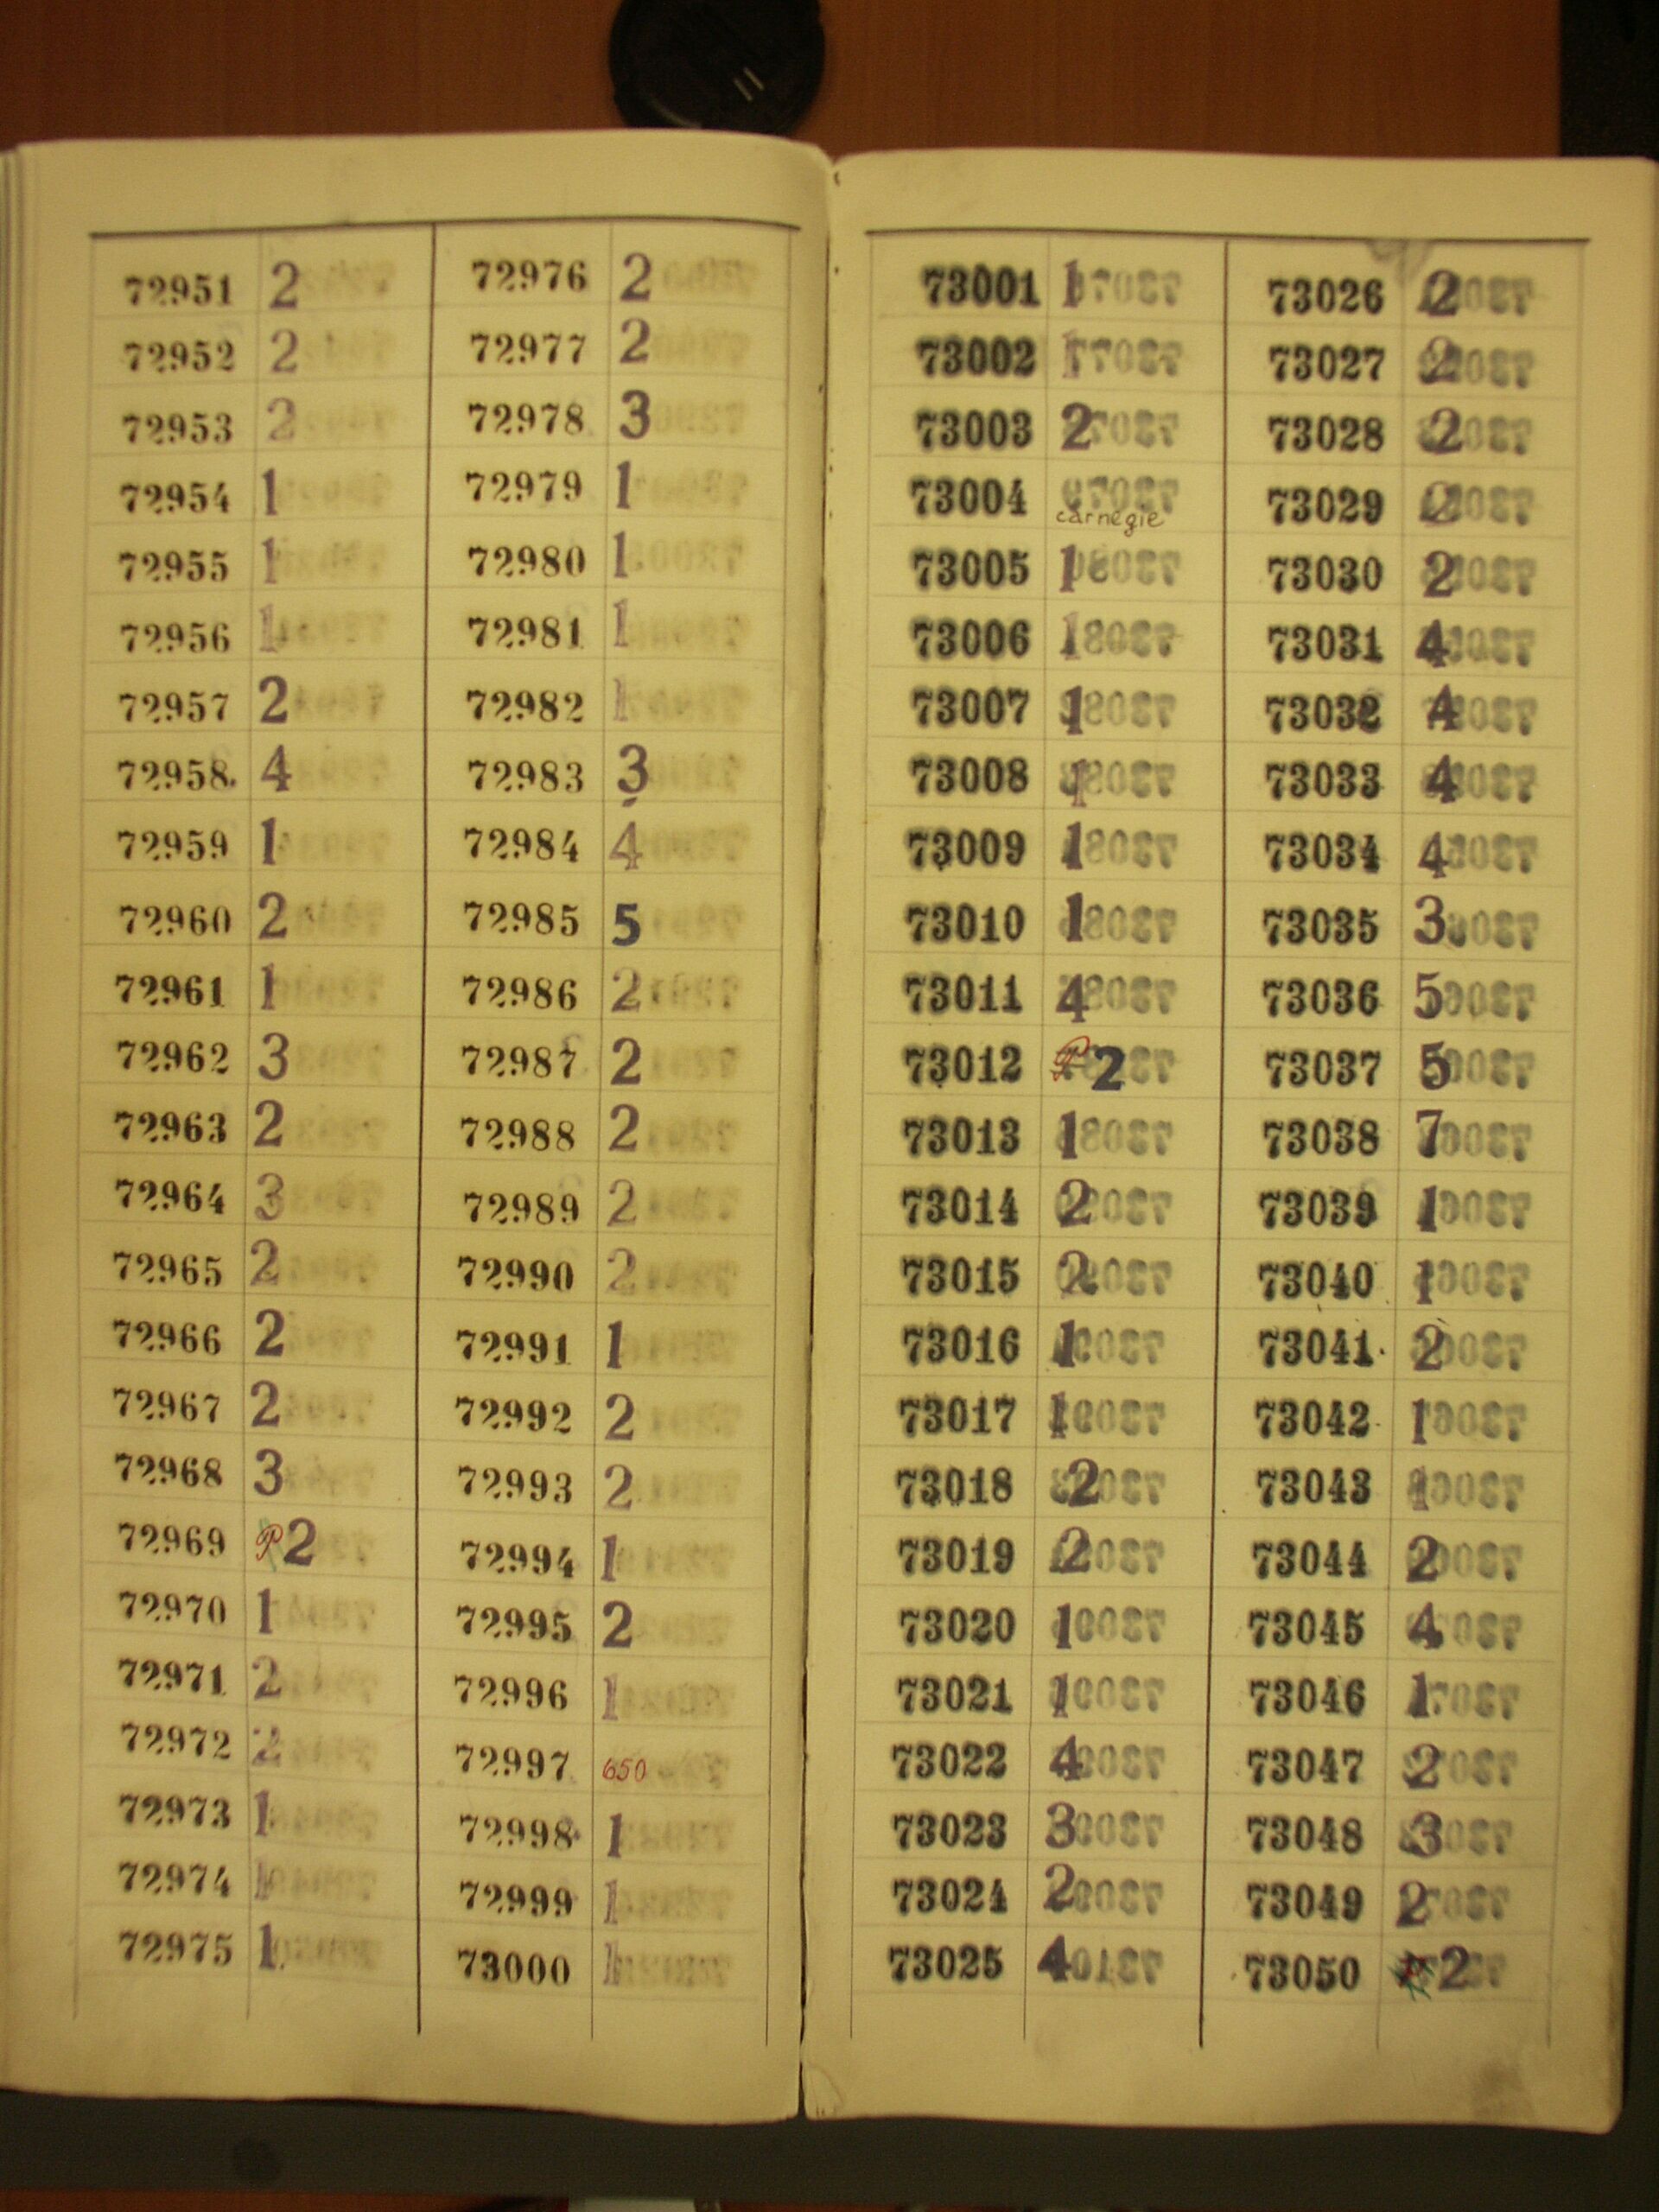 72951 2
72952 2
72953 2
72954 1
72955 1
72956 1
72957 2
72958 4
72959 1
72960 2
72961 1
72962 3
72963 2
72964 3
72965 2
72966 2
72967 2
72968 3
72969 P 2
72970 1
72971 2
72972 2
72973 1
72974 1
72975 1
72976 2
72977 2
72978 3
72979 1
72980 1
72981 1
72982 1
72983 3
72984 4
72985 5
72986 2
72987 2
72988 2
72989 2
72990 2
72991 1
72992 2
72993 2
72994 1
72995 2
72996 1
72997 650
72998 1
72999 1
73000 1
73001 1
73002 1
73003 2
73004 carnegie
73005 1
73006 1
73007 1
73008 1
73009 1
73010 1
73011 4
73012 P 2
73013 1
73014 2
73015 2
73016 1
73017 1
73018 2
73019 2
73020 1
73021 1
73022 4
73023 3
73024 2
73025 4
73026 2
73027 2
73028 2
73029 2
73030 2
73031 4
73032 4
73033 4
73034 4
73035 3
73036 5
73037 5
73038 7
73039 1
73040 1
73041 2
73042 1
73043 1
73044 2
73045 4
73046 1
73047 2
73048 3
73049 2
73050 2